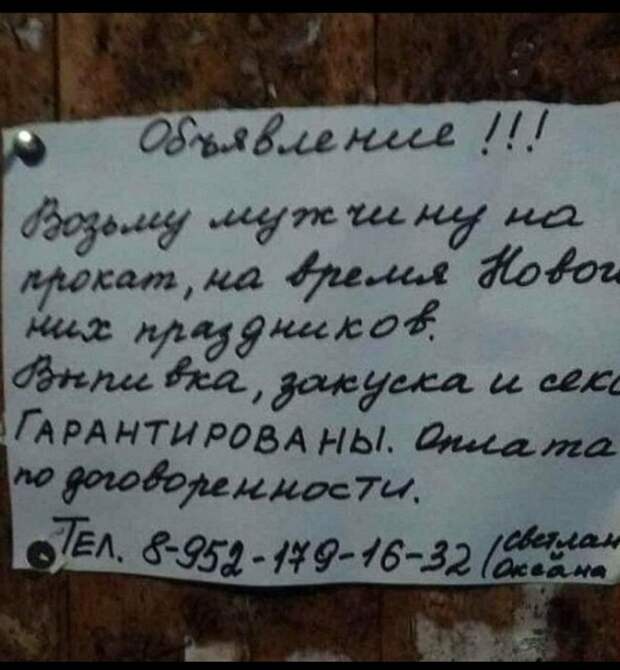 Объявление !!!
Возьму мужчину на
прокат, на время Новог
них праздников.
Выпивка, закуска и секс
ГАРАНТИРОВАНЫ. Оплата
по договоренности.
ТЕЛ. 8-952-179-16-32 (Светлан
Оксана